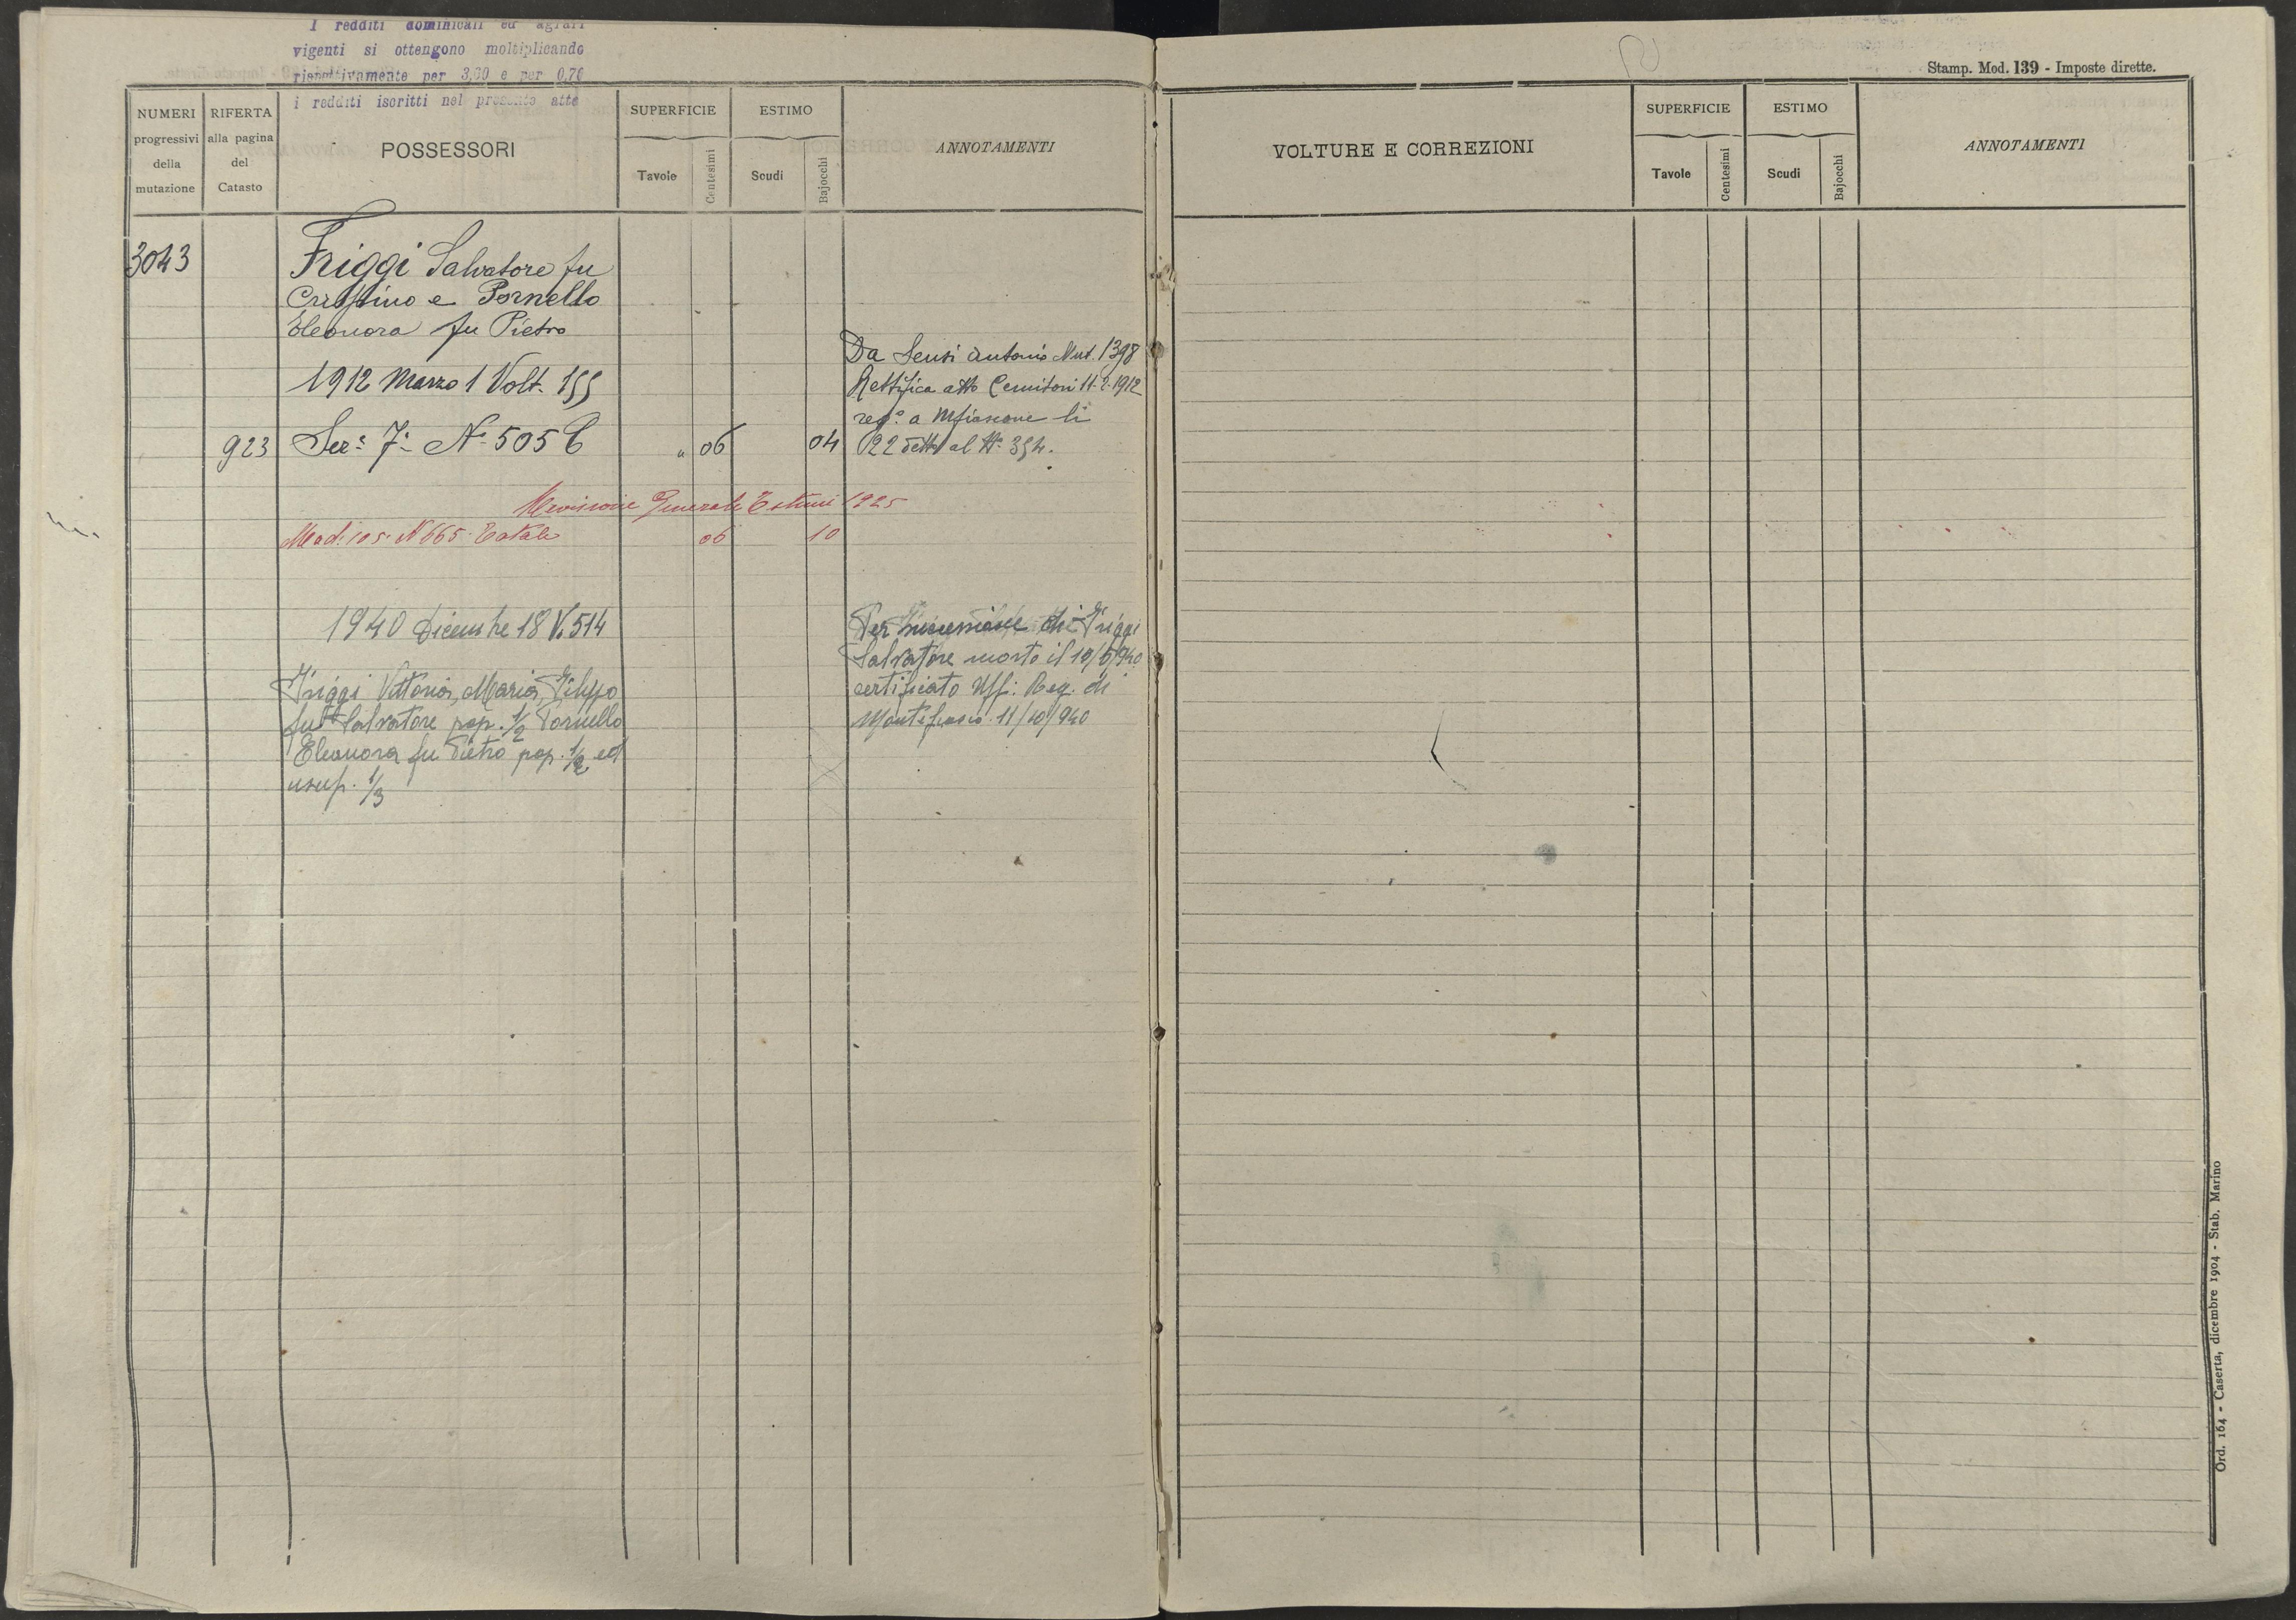 I redditi dominicali ed agrari
vigenti si ottengono moltiplicando
rispettivamente per 3,60 e per 0,70
i redditi iscritti nel presente atto
Stamp. Mod. 139 - Imposte dirette.
NUMERI
progressivi
della
mutazione
RIFERTA
alla pagina
del
Catasto
POSSESSORI
SUPERFICIE
Tavole
Centesimi
ESTIMO
Scudi
Bajocchi
ANNOTAMENTI
VOLTURE E CORREZIONI
SUPERFICIE
Tavole
Centesimi
ESTIMO
Scudi
Bajocchi
ANNOTAMENTI
3043
Friggi Salvatore fu
Crispino e Pornello
Eleonora fu Pietro
1912 Marzo 1 Volt. 155
923 Sez: 7: N. 505 " 06 04
Da Sensi Antonio Mut. 1398
Rettifica atto 11-2-1912
reg: a Mfiascone li
22 detto al N. 354.
Revisione Generale Estimi 1925
Mod. 10 S. N 665 Totale 06 10
1940 Dicembre 18 V. 514
Friggi Vittoria, Maria, Filippo
fu Salvatore pop. 1/2 Pornello
Eleonora fu Pietro pop. 1/2 ed
usuf. 1/3
Per successione di Friggi
Salvatore morto il 10/6/940
certificato Uff: Reg. di
Montefiasco 11/10/940
Ord. 164 - Caserta, dicembre 1904 - Stab. Marino